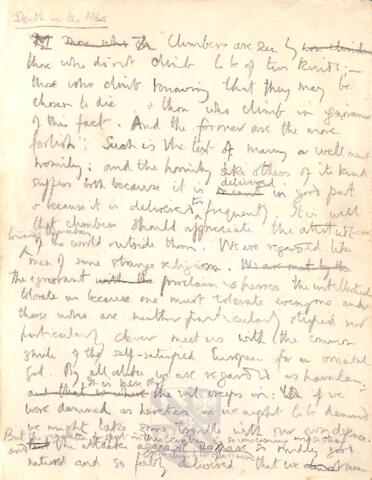 Death in the Alps
Climbers are seen by
those who do not climb to be of two kinds: —
those who climb knowing that they may be
chosen to die & those who climb in ignorance
of this fact. And the former are the more
foolish": Such is the text of many a well meant
homily: and the homily like others of its kind
suffers both because it is delivered in good part
& because it is delivered frequently. It is well
that climbers should appreciate the attitude
of the world outside them. We are regarded like
men of some strange religion. We are met by the
the ignorant proclaim us heroes the intellectual
tolerate us because one must tolerate everyone and
those who are neither particularly stupid nor
particularly clever meet us with the common
smile of the self-satisfied European for an oriental
God. By all alike we are regarded as harmless;
and that is where the evil creeps in: if we
were damned as heretics as we ought to be damned
we might take some trouble with our
But the
and the attack is so good
natured and so feebly delivered that we seem